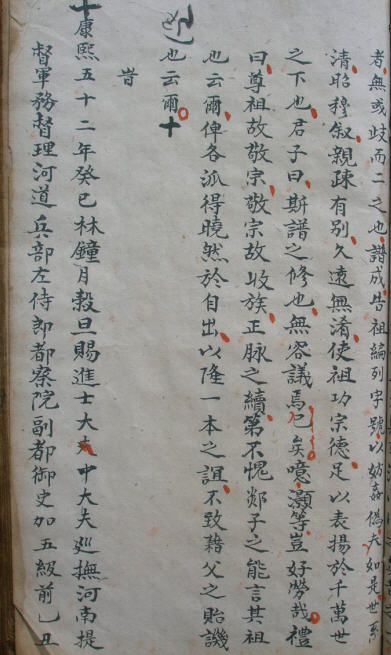 者無或歧而二之也譜成告祖編列字號以妨姦偽夫如是世系
清昭穆叙親疎有别久遠無淆使祖功宗德足以表揚於千萬世
之下也君子曰斯譜之修也無容議焉已矣噫灝等豈好勞哉禮
曰尊祖故敬宗敬宗故收族正脉之續第不愧郯子之能言其祖
也云爾俾各派得曉然於自出以隆一本之誼不致藉父之貽譏
也云爾
旹
康熙五十二年癸巳林鐘月穀旦賜進士大夫中大夫廵撫河南提
督軍務督理河道兵部左侍郎都察院副都御史加五級前乙丑